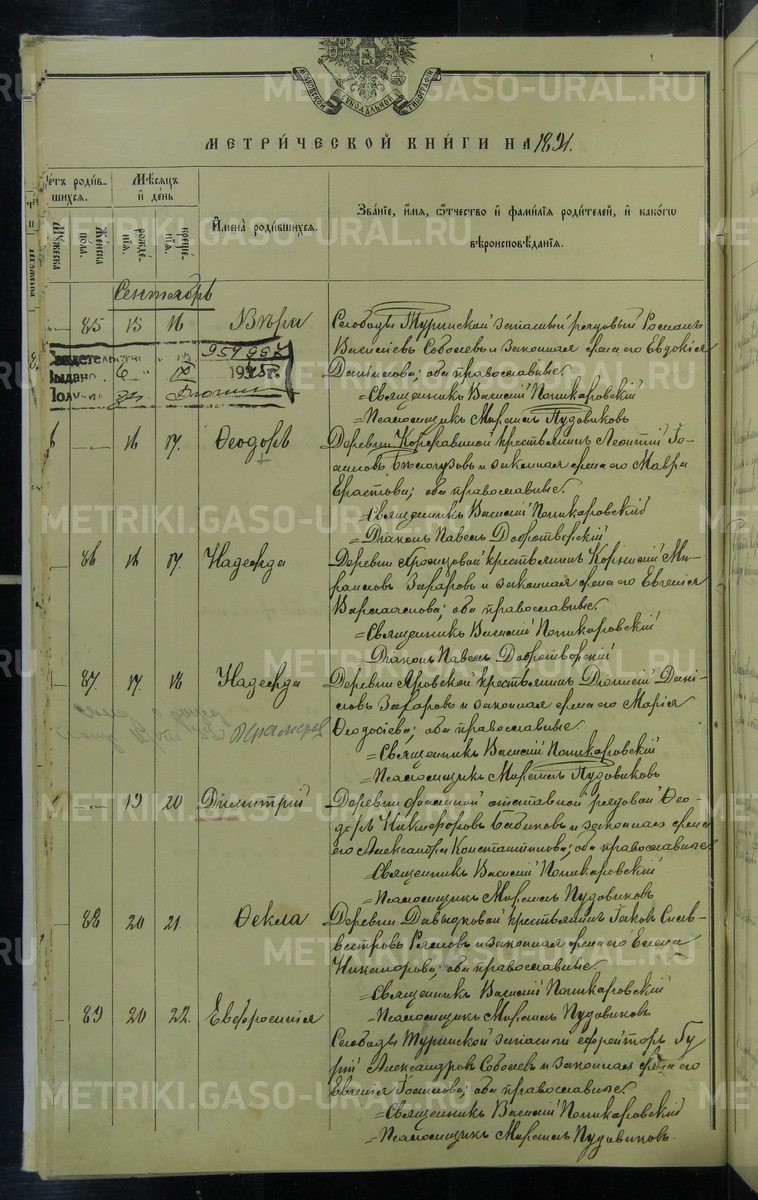 МОСКОВСКОЙ СѴНОДАЛЬНОЙ ТИПОГРАФІИ
МЕТРИ́ЧЕСКОЙ КНИ́ГИ НА 1891.
Мѣсяцъ и҆ де́нь
Мꙋжеска
Же́нска по́ла.
рожде́нїѧ.
креще́нїѧ.
И҆мена̀ роди́вшихсѧ.
Зва́нїе, и҆́мѧ, ѻ҆́тчество и҆ фами́лїѧ роди́телей, и҆ како́гѡ вѣроисповѣ́данїѧ.
Сентябрь
85 15 16 Вѣра
Слободы Туринской запасный рядовый Романъ
Василіевъ Соболевъ и законная жена его Евдокія
Даніилова; оба православные.
=Священникъ Василій Попикаровскій
=Псаломщикъ Мартинъ Пудовиковъ
Свидетельство 957997
Выдано 6 IX 1945 г.
16 17. Ѳеодоръ
законная жена его Мавра
Ерастова; оба православные.
=Священникъ Василій Попикаровскій
=Діаконъ Павелъ Добротворскій
86 16 17. Надежда
законная жена его Евгенія
Варлаамова; оба православные.
=Священникъ Василій Попикаровскій
=Діаконъ Павелъ Добротворскій
87. 17 18 Надежда
Деревни Яровской крестьянинъ Діонисій Дані-
ловъ Захаровъ и законная жена его Марія
Ѳеодосіева; оба православные.
=Священникъ Василій Попикаровскій
=Псаломщикъ Мартинъ Пудовиковъ
19 20 Димитрій
отставной рядовой Ѳео-
доръ Никифоровъ Бабиковъ и законная жена
его Александра Константинова; оба православные.
=Священникъ Василій Попикаровскій
=Псаломщикъ Мартинъ Пудовиковъ
88 20 21. Ѳекла
Деревни Давыдковой крестьянинъ Іаковъ Силь-
вестровъ и законная жена его Елена
Никанорова; оба православные.
=Священникъ Василій Попикаровскій
=Псаломщикъ Мартинъ Пудовиковъ
89 20 22. Евфросинія
Слободы Туринской запасный ефрейторъ Гу-
рій Александровъ Соболевъ и законная жена его
Евгенія Іосипова; оба православные.
=Священникъ Василій Попикаровскій
=Псаломщикъ Мартинъ Пудовиковъ.
METRIKI.GASO-URAL.RU